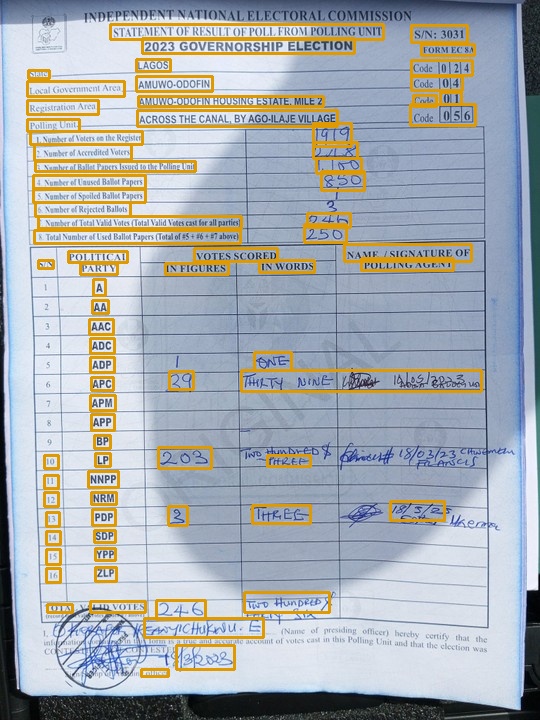 INDEPENDENT NATIONAL ELECTORAL COMMISSION
STATEMENT OF RESULT OF POLL FROM POLLING UNIT
S/N: 3031
2023 GOVERNORSHIP ELECTION
FORM EC 8A
State LAGOS Code 0 2 4
Local Government Area AMUWO-ODOFIN Code 0 4
Registration Area AMUWO-ODOFIN HOUSING ESTATE, MILE 2 Code 0 1
Polling Unit ACROSS THE CANAL, BY AGO-ILAJE VILLAGE Code 0 5 6
1. Number of Voters on the Register 1919
2. Number of Accredited Voters
3. Number of Ballot Papers Issued to the Polling Unit 1,100
4. Number of Unused Ballot Papers 850
5. Number of Spoiled Ballot Papers 1
6. Number of Rejected Ballots 3
7. Number of Total Valid Votes (Total Valid Votes cast for all parties) 246
8. Total Number of Used Ballot Papers (Total of #5 + #6 + #7 above) 250
S/N POLITICAL PARTY VOTES SCORED IN FIGURES IN WORDS NAME / SIGNATURE OF POLLING AGENT
1 A
2 AA
3 AAC
4 ADC
5 ADP 1 ONE
6 APC 39 THIRTY NINE 18/03/2023
7 APM
8 APP
9 BP
10 LP 203 TWO HUNDRED & THREE 18/03/23 FRANCIS
11 NNPP
12 NRM
13 PDP 3 THREE 18/3/23
14 SDP
15 YPP
16 ZLP
TOTAL VALID VOTES 246 TWO HUNDRED & FORTY SIX
(Name of presiding officer) hereby certify that the
information contained in this form is a true and accurate account of votes cast in this Polling Unit and that the election was
CONTESTED
18/3/2023